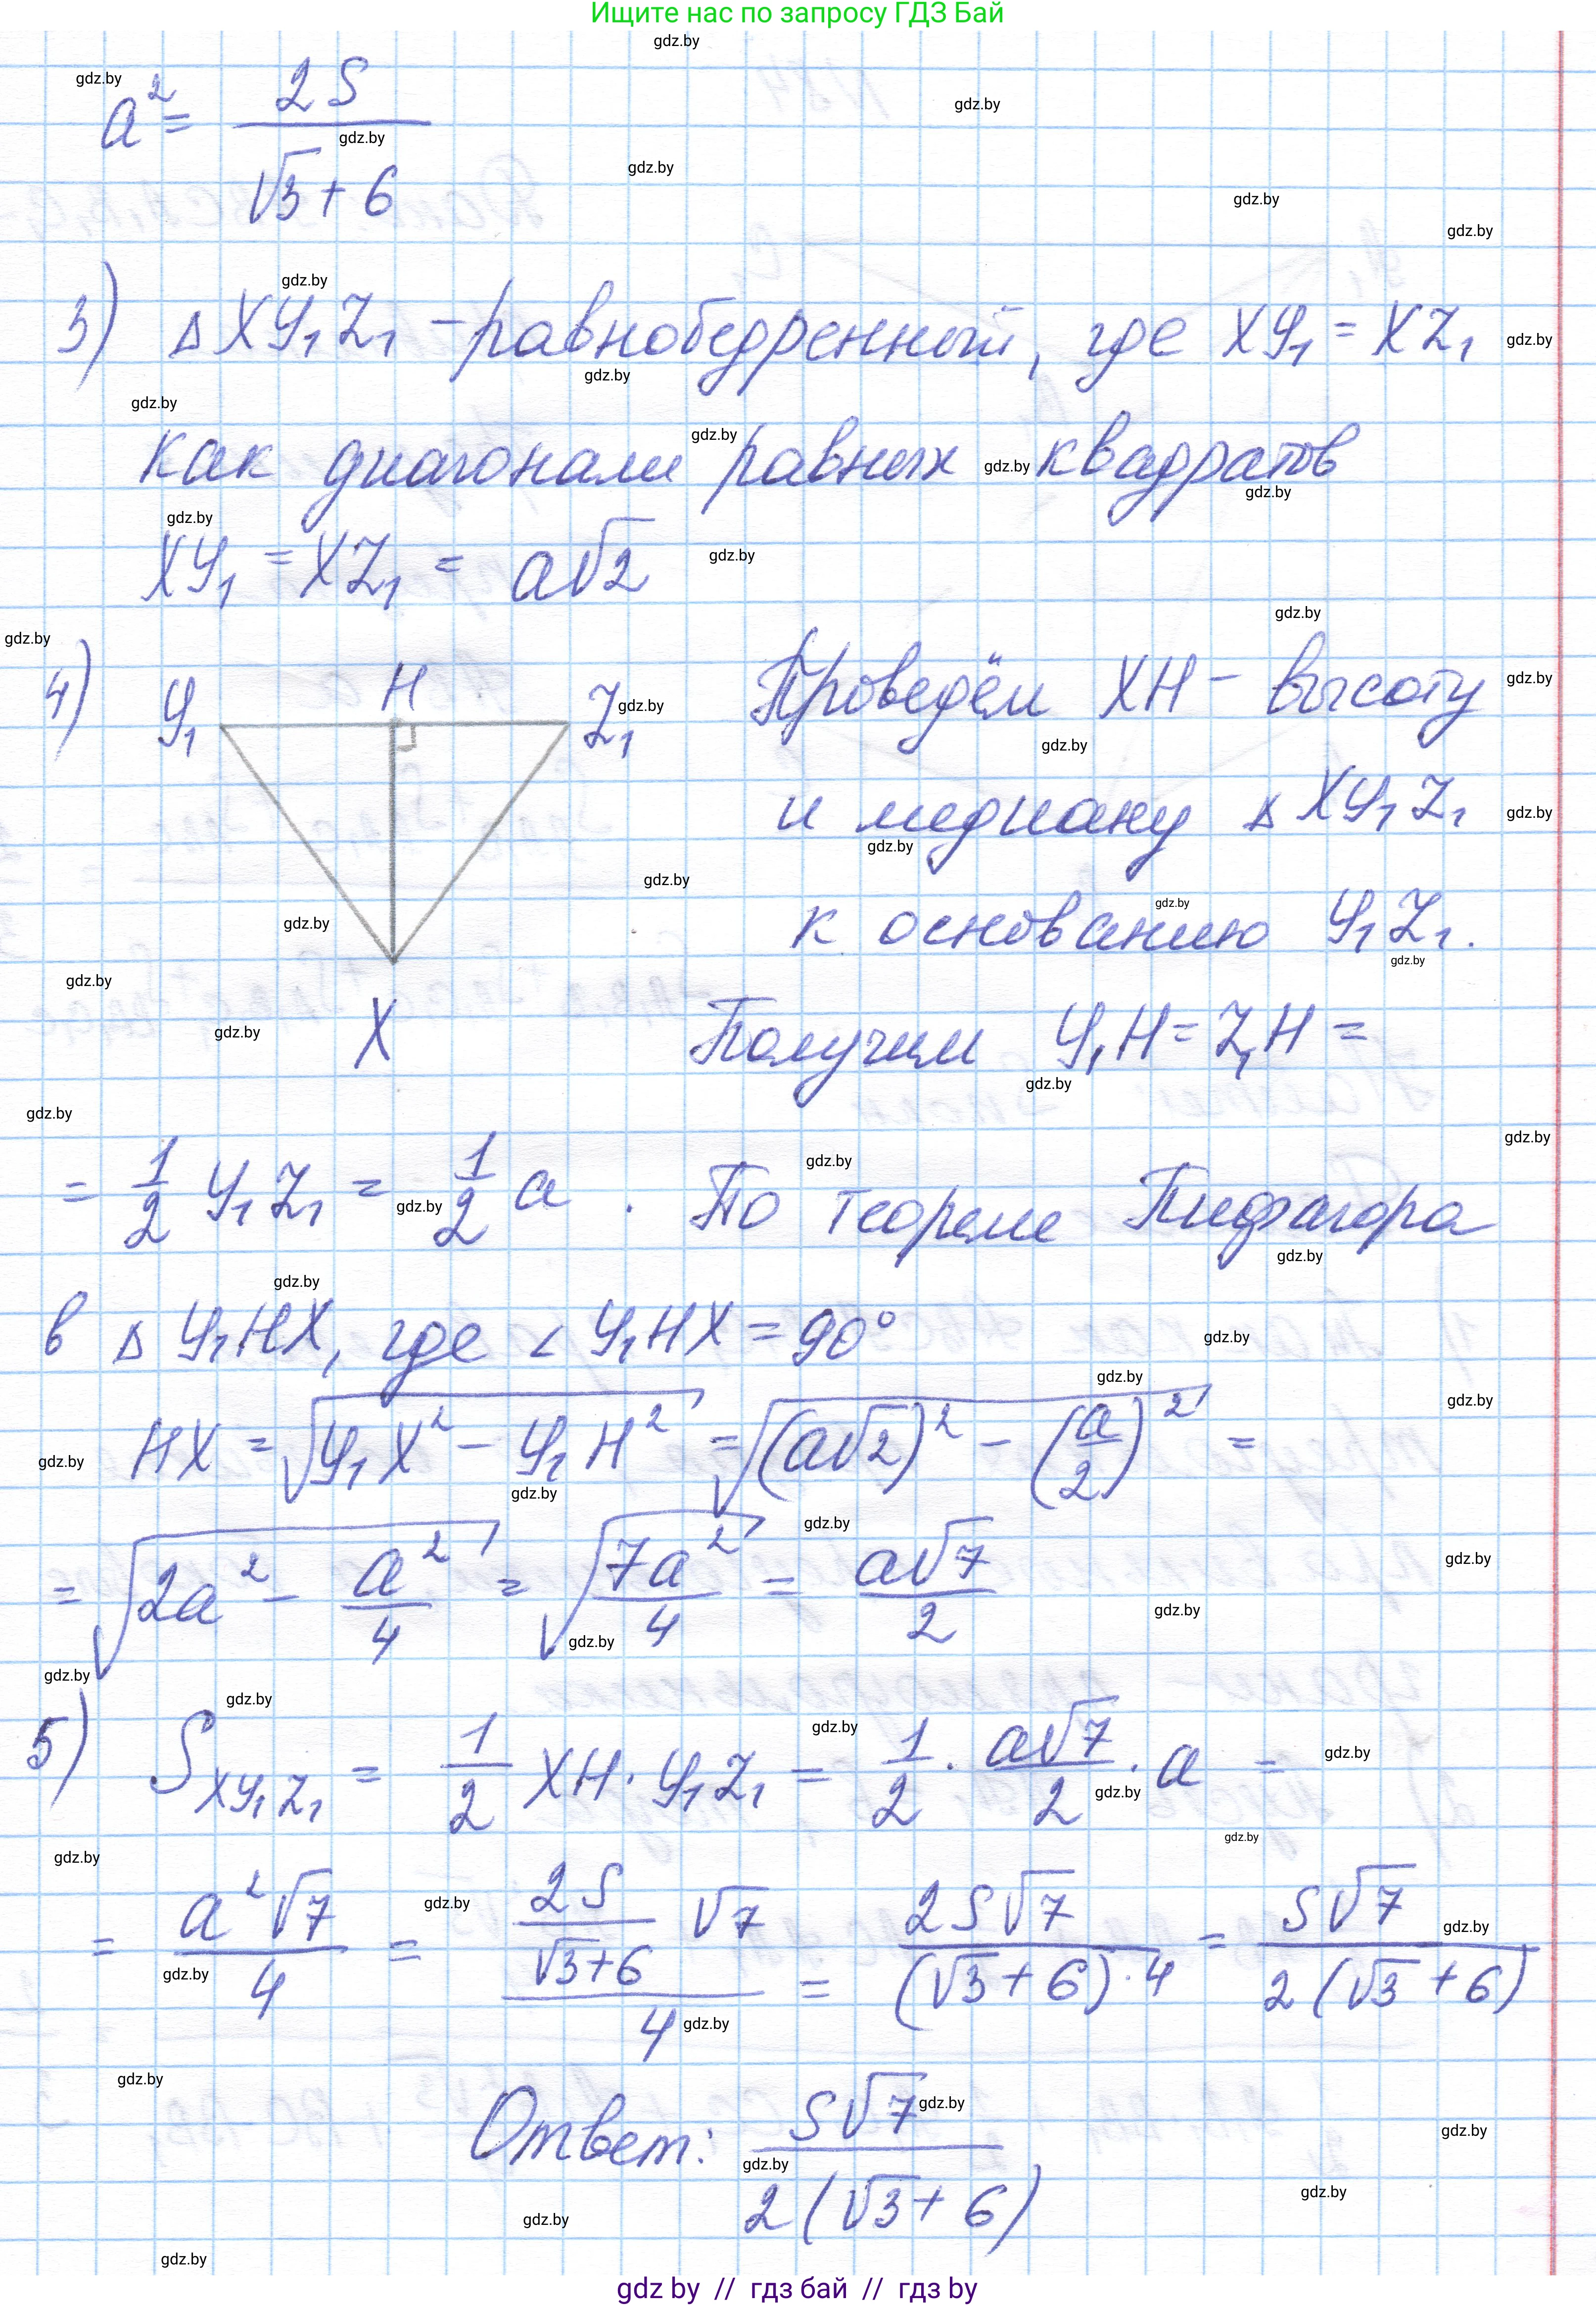 Ищите нас по запросу ГДЗ Бай
a² = 2S / (√3 + 6)
3) △XY₁Z₁ – равнобедренный, где XY₁ = XZ₁
как диагонали равных квадратов
XY₁ = XZ₁ = a√2
4) Y₁ H Z₁ X
Проведём XH – высоту
и медиану △XY₁Z₁
к основанию Y₁Z₁.
Получим Y₁H = Z₁H =
= 1/2 Y₁Z₁ = 1/2 a . По теореме Пифагора
в △Y₁HX, где ∠Y₁HX = 90°
HX = √(Y₁X² – Y₁H²) = √((a√2)² – (a/2)²) =
= √(2a² – a²/4) = √(7a²/4) = a√7/2
5) S XY₁Z₁ = 1/2 XH · Y₁Z₁ = 1/2 · a√7/2 · a =
= a²√7/4 = (2S/(√3+6) √7)/4 = 2S√7/((√3+6)·4) = S√7/(2(√3+6))
Ответ: S√7/(2(√3+6))
gdz by // гдз бай // гдз by